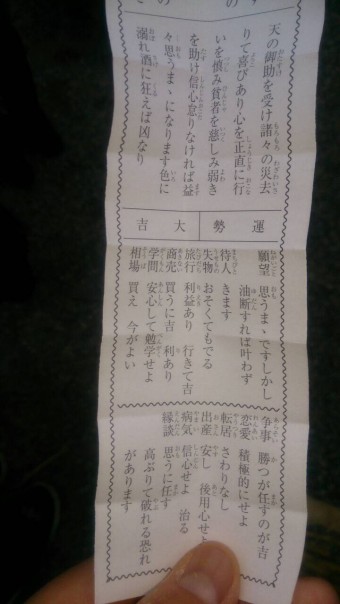 天の御助を受け諸々の災去
りて喜びあり心を正直に行
いを慎み貧者を慈しみ弱き
を助け信心怠りなければ益
々思うまゝになります色に
溺れ酒に狂えば凶なり
運勢 大吉
願望 思うまゝですしかし
油断すれば叶わず
待人 きます
失物 おそくてもでる
旅行 利益あり 行きて吉
商売 買うに吉 利あり
学問 安心して勉学せよ
相場 買え 今がよい
争事 勝つが任すのが吉
恋愛 積極的にせよ
転居 さわりなし
出産 安し 後用心せよ
病気 信心せよ 治る
縁談 思うに任す
高ぶりて破れる恐れ
があります